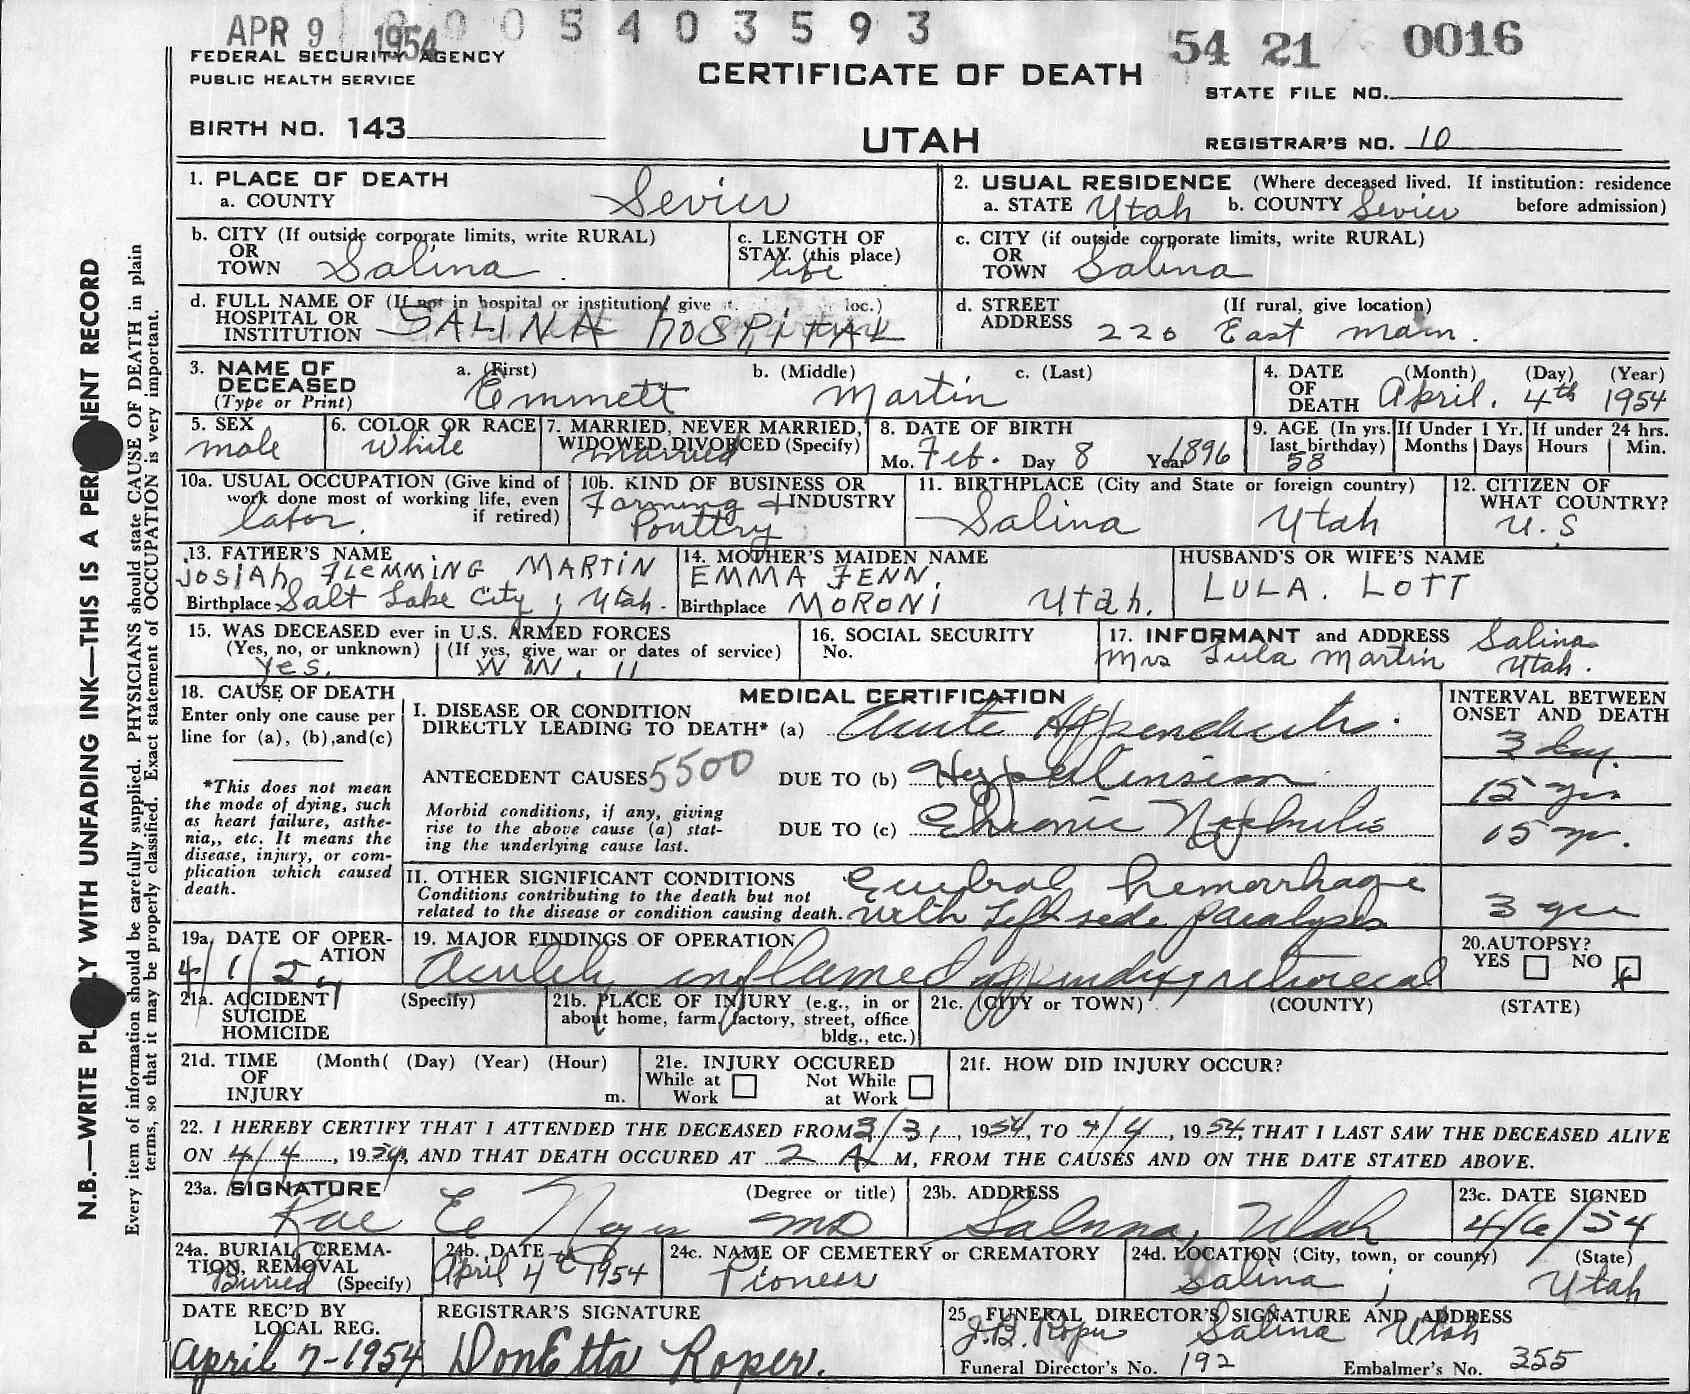 APR 9 1954 0005403593 54 21 0016
FEDERAL SECURITY AGENCY
PUBLIC HEALTH SERVICE
CERTIFICATE OF DEATH
STATE FILE NO.
BIRTH NO. 143
UTAH
REGISTRAR'S NO. 10
N.B.—WRITE PLAINLY WITH UNFADING INK—THIS IS A PERMANENT RECORD
Every item of information should be carefully supplied. PHYSICIANS should state CAUSE OF DEATH in plain
terms, so that it may be properly classified. Exact statement of OCCUPATION is very important.
1. PLACE OF DEATH
a. COUNTY Sevier
2. USUAL RESIDENCE (Where deceased lived. If institution: residence
a. STATE Utah b. COUNTY Sevier before admission)
b. CITY (If outside corporate limits, write RURAL)
OR
TOWN Salina
c. LENGTH OF
STAY (this place)
life
c. CITY (if outside corporate limits, write RURAL)
OR
TOWN Salina
d. FULL NAME OF (If not in hospital or institution, give st. loc.)
HOSPITAL OR
INSTITUTION SALINA HOSPITAL
d. STREET (If rural, give location)
ADDRESS 220 East Main.
3. NAME OF
DECEASED
(Type or Print)
a. (First) b. (Middle) c. (Last)
Emmett Martin
4. DATE (Month) (Day) (Year)
OF
DEATH April. 4th 1954
5. SEX
male
6. COLOR OR RACE
White
7. MARRIED, NEVER MARRIED,
WIDOWED, DIVORCED (Specify)
Married
8. DATE OF BIRTH
Mo. Feb. Day 8 Year 1896
9. AGE (In yrs.
last birthday)
58
If Under 1 Yr.
Months Days
If under 24 hrs.
Hours Min.
10a. USUAL OCCUPATION (Give kind of
work done most of working life, even
if retired)
labor.
10b. KIND OF BUSINESS OR
INDUSTRY
Farming &
Poultry
11. BIRTHPLACE (City and State or foreign country)
Salina Utah
12. CITIZEN OF
WHAT COUNTRY?
U.S
13. FATHER'S NAME
JOSIAH FLEMMING MARTIN
Birthplace Salt Lake City, Utah.
14. MOTHER'S MAIDEN NAME
EMMA FENN.
Birthplace MORONI Utah.
HUSBAND'S OR WIFE'S NAME
LULA. LOTT
15. WAS DECEASED ever in U.S. ARMED FORCES
(Yes, no, or unknown) (If yes, give war or dates of service)
yes. W W. 11
16. SOCIAL SECURITY
No.
17. INFORMANT and ADDRESS Salina
Mrs Lula Martin Utah.
18. CAUSE OF DEATH
Enter only one cause per
line for (a), (b), and (c)
*This does not mean
the mode of dying, such
as heart failure, asthe-
nia,, etc. It means the
disease, injury, or com-
plication which caused
death.
MEDICAL CERTIFICATION
I. DISEASE OR CONDITION
DIRECTLY LEADING TO DEATH* (a) Acute Appendicitis.
ANTECEDENT CAUSES 5500 DUE TO (b) Hypertension
Morbid conditions, if any, giving
rise to the above cause (a) stat-
ing the underlying cause last.
DUE TO (c) Chronic Nephritis
INTERVAL BETWEEN
ONSET AND DEATH
3 day.
15 yrs
15 yr.
II. OTHER SIGNIFICANT CONDITIONS
Conditions contributing to the death but not
related to the disease or condition causing death.
Cerebral hemorrhage
with left side paralysis
3 yrs
19a. DATE OF OPER-
ATION
4/1/54
19. MAJOR FINDINGS OF OPERATION
Acutely inflamed appendix, retrocecal
20. AUTOPSY?
YES NO X
21a. ACCIDENT (Specify)
SUICIDE
HOMICIDE
21b. PLACE OF INJURY (e.g., in or
about home, farm, factory, street, office
bldg., etc.)
21c. (CITY or TOWN) (COUNTY) (STATE)
21d. TIME (Month( (Day) (Year) (Hour)
OF
INJURY m.
21e. INJURY OCCURED
While at Work Not While at Work
21f. HOW DID INJURY OCCUR?
22. I HEREBY CERTIFY THAT I ATTENDED THE DECEASED FROM 3/31, 1954, TO 4/4, 1954, THAT I LAST SAW THE DECEASED ALIVE
ON 4/4, 1954, AND THAT DEATH OCCURED AT 2 A M, FROM THE CAUSES AND ON THE DATE STATED ABOVE.
23a. SIGNATURE (Degree or title)
Rae E Noyes MD
23b. ADDRESS
Salina, Utah
23c. DATE SIGNED
4/6/54
24a. BURIAL, CREMA-
TION, REMOVAL
(Specify)
Buried
24b. DATE
April 4th 1954
24c. NAME OF CEMETERY or CREMATORY
Pioneer
24d. LOCATION (City, town, or county) (State)
Salina, Utah
DATE REC'D BY
LOCAL REG.
April 7-1954
REGISTRAR'S SIGNATURE
DonEtta Roper.
25. FUNERAL DIRECTOR'S SIGNATURE AND ADDRESS
J.B. Roper Salina Utah
Funeral Director's No. 192 Embalmer's No. 355